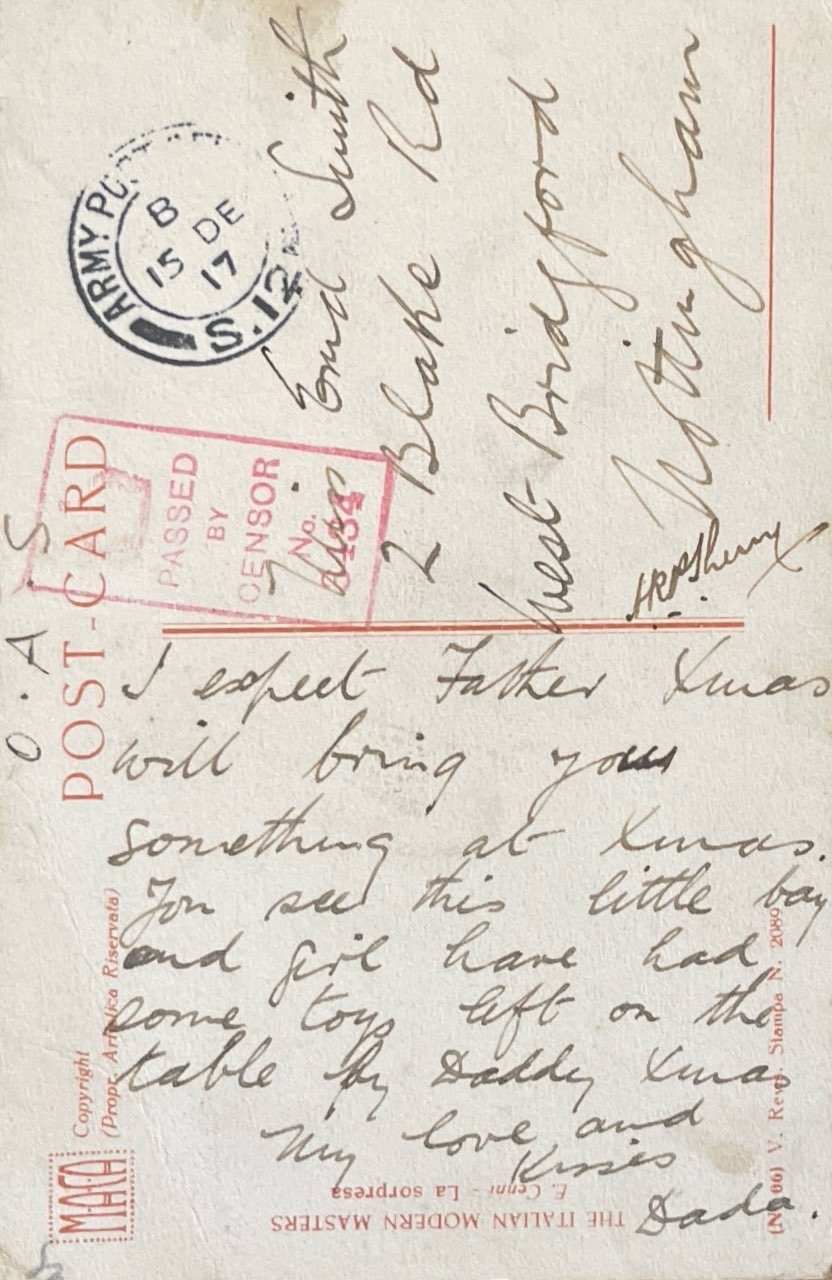 O.A.S
POST-CARD
ARMY POST
B
15 DE
17
S.12
PASSED
BY
CENSOR
No.
Miss Enid Smith
2 Blake Rd
West Bridgford
Nottingham
I expect Father Xmas
will bring you
something at Xmas.
You see this little boy
and girl have had
some toys left on the
table by Daddy Xmas
My love and
Kisses
Dada.
Copyright
(Propr. Artistica Riservata)
THE ITALIAN MODERN MASTERS
E. Cenni - La sorpresa
V. Rev. Stampa N. 2089